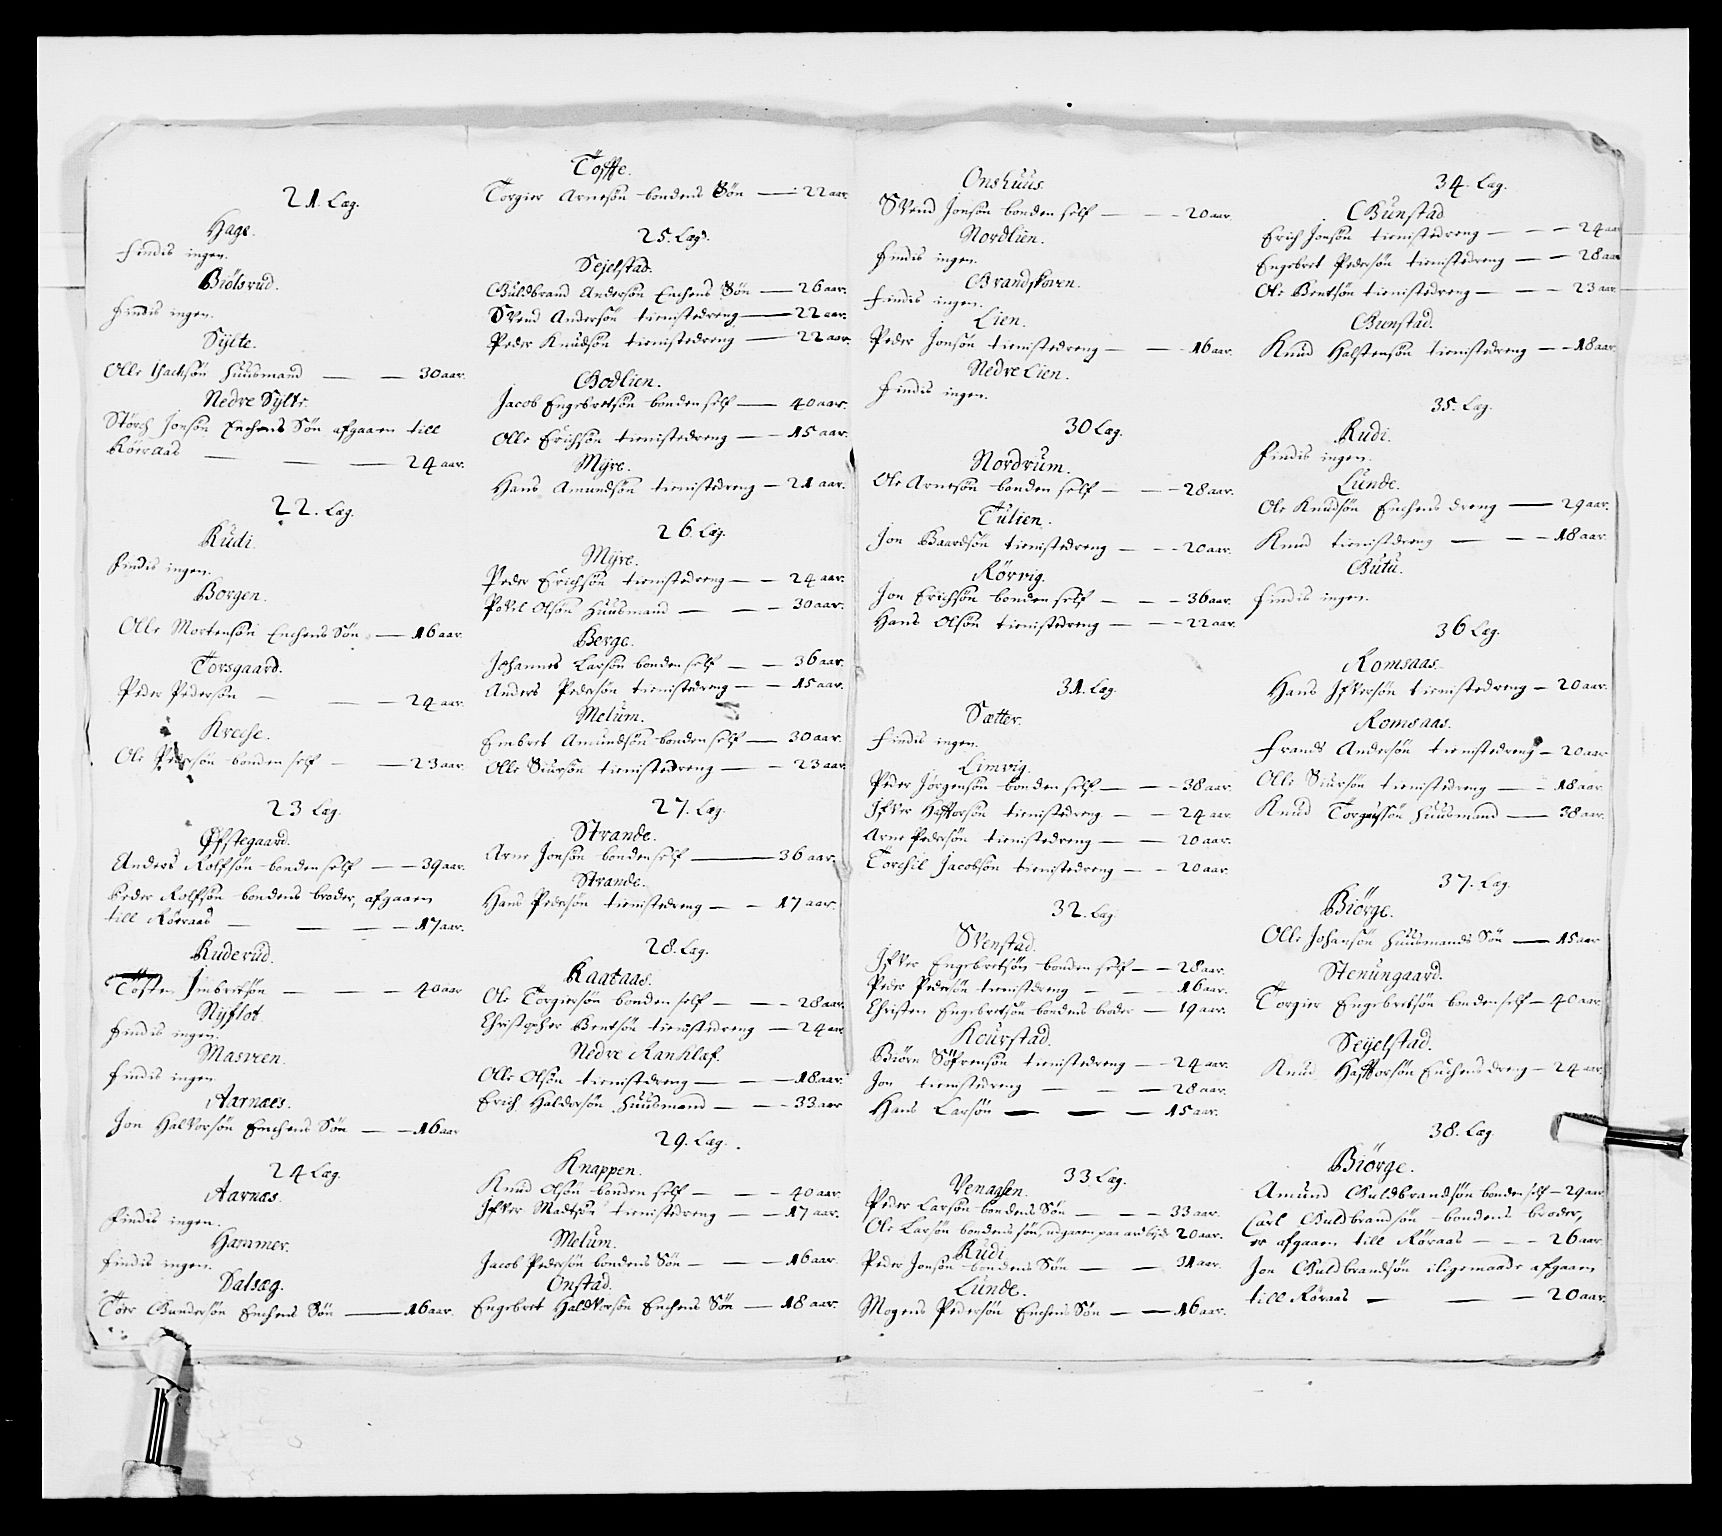 21. Læg.
Hage.
Findis ingen.
Biölsrud.
Findis ingen.
Sÿlte.
Olle Isachsön Huusmand — — 30 aar.
Nedre Sylte.
Störch Jonsön Enchens Sön afgaaen till
Röeraas — — — 24 aar.
22. Læg.
Rudi.
Findis ingen.
Borgen.
Olle Mortensön Enchens Sön — 16 aar.
Torsgaard.
Peder Pedersön — — — 24 aar.
Kreche.
Ole Pedersön bonden self — — 23 aar.
23 Læg.
Øfstegaard.
Anders Rolfsön bonden self — 39 aar.
Peder Rolfsön bondens broder, afgaaen
till Röeraas — — — 17 aar.
Ruderud.
Tösten Imbretsön — — — 40 aar
Nÿflot.
Findis ingen.
Masveen.
Findis ingen
Aarnæs.
Jon Halvorsön Enchens Sön — — 16 aar
24 Læg.
Aarnæs.
Findis ingen.
Hammer.
Findis ingen.
Dalsæg.
Töer Gundersön Enchens Sön — 16 aar.
Töffte.
Torgier Arnesön bondens Sön — 22 aar.
25. Lægd.
Sejelstad.
Guldbrand Andersön Enchens Sön — 26 aar.
Svend Andersön tienistedreng — 22 aar.
Peder Knudsön tienistedreng — 22 aar.
Bodlien.
Jacob Engebretsön bonden self — 40 aar.
Olle Erichsön tienistedreng — 15 aar.
Mÿre.
Hans Amundsön tienistedreng — 21 aar.
26. Læg.
Mÿre.
Peder Erichsön tienistedreng — 24 aar.
Povel Olsön Huusmand — — 30 aar.
Berge.
Johannes Larsön bonden self — — 36 aar.
Anders Pedersön tienistedreng — — 15 aar.
Melum.
Embret Amundsön bonden self — 30 aar.
Olle Siursön tienistedreng — — 23 aar.
27. Læg.
Strande.
Arne Jonsön bonden self — 36 aar.
Strande.
Hans Pedersön tienistedreng — — 17 aar.
28. Læg.
Raataas.
Ole Torgiersön bonden self — — 28 aar.
Christopher Bentsön tienistedreng — 24 aar
Nedre Ranklaf.
Olle Olsön tienistedreng — — 18 aar.
Erich Haldorsön Huusmand — — 33 aar
29. Læg.
Knappen.
Knud Olsön bonden self — — 40 aar.
Ifver Madtsön tienistedreng — — 17 aar.
Melum.
Jacob Pedersön bondens Sön — — 16 aar.
Onstad.
Engebret Haldvorsön Enchens Sön — 18 aar.
Onshuus.
Svend Jonsön bonden self — — 20 aar.
Nordlien.
Findis ingen.
Findis ingen.
Lien.
Peder Jonsön tienistedreng — — 16 aar.
Nedre Lien.
Findis ingen.
30 Læg.
Nordrum.
Ole Arnesön bonden self — — 28 aar.
Tulien.
Jon Baardsön tienistedreng — — 20 aar.
Rörvig.
Jon Erichsön bonden self — — 36 aar.
Hans Olsön tienistedreng — — 22 aar.
31. Læg.
Sætter.
Findis ingen.
Limvig.
Peder Jörgensön bonden self — — 38 aar.
Ifver Haffvorsön tienistedreng — — 24 aar.
Arne Pedersön tienistedreng — — 20 aar.
Torchil Jacobsön tienistedreng — — 20 aar.
32. Læg.
Svenstad.
Ifver Engebretsön bonden self — — 28 aar.
Peder Pedersön tienistedreng — — 16 aar.
Christen Engebretsön bondens broder — 19 aar.
Kourstad.
Biörn Söfrensön tienistedreng — 24 aar.
Jon tienistedreng — — 28 aar.
Hans Larsön — — — 15 aar.
33 Læg.
Peder Larsön bondens Sön — — 33 aar.
Ole Larsön bondens sön, udgaaen paa arbejde 20 aar.
Rudi
Peder Jonsön bondens Sön — — 31 aar.
Lunde.
Mogens Pedersön Enchens Sön — 16 aar.
34. Læg.
Bunstad
Erich Jonsön tienistedreng — — 24 aar
Engebret Pedersön tienistedreng — — 28 aar
Ole Bentsön tienistedreng — — 23 aar.
Bunstad.
Knud Halstensön tienistedreng — 18 aar.
35. Læg.
Rudi.
Findis ingen.
Lunde.
Ole Knudsön Enchens dreng — 29 aar.
Knud tienistedreng — — 18 aar.
Butu.
Findis ingen.
36 Læg.
Romsaas.
Hans Ifversön tienistedreng — 20 aar.
Romsaas.
Frands Andersön tienistedreng — 20 aar
Olle Siursön tienistedreng — 18 aar.
Knud Torgiussön Huusmand — 38 aar.
37. Læg.
Biörge.
Olle Johansön Huusmands Sön — 15 aar
Stenungaard.
Torgier Engebretsön bonden self — 40 aar.
Seÿelstad.
Knud Haffvorsön Enchens dreng — 24 aar.
38. Læg.
Biörge.
Amund Guldbrandsön bonden self — 29 aar
Carl Guldbrandsön bondens broder,
er afgaaen till Röraas — — 26 aar.
Jon Guldbrandsön iligemaade afgaaen
till Röraas — — — 20 aar.